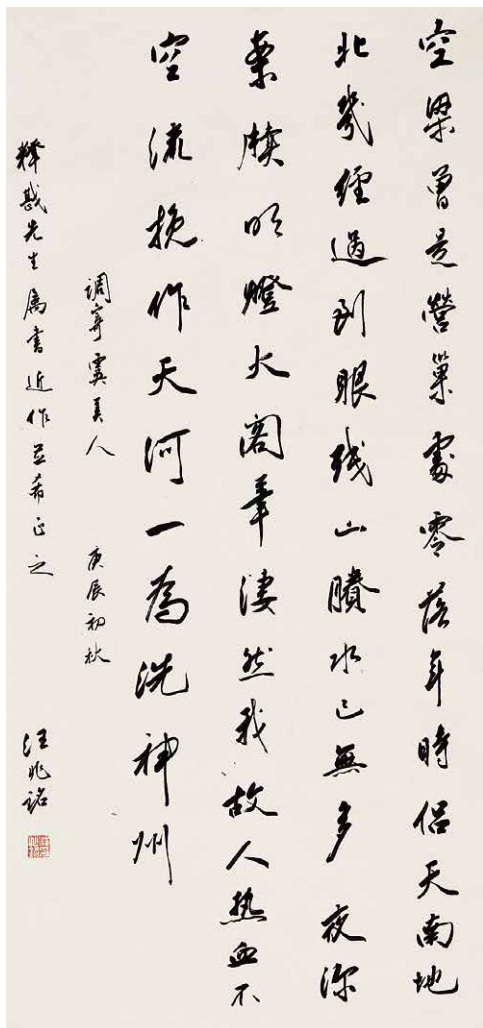 空梁曾是營巢處零落年時侶天南地
北幾經過到眼残山賸水已無多夜深
案牘明燈火閣筆淒然我故人热血不
空流挽作天河一為洗神州
調寄虞美人 庚辰初秋
釋戡先生属書近作並希正之 汪兆銘